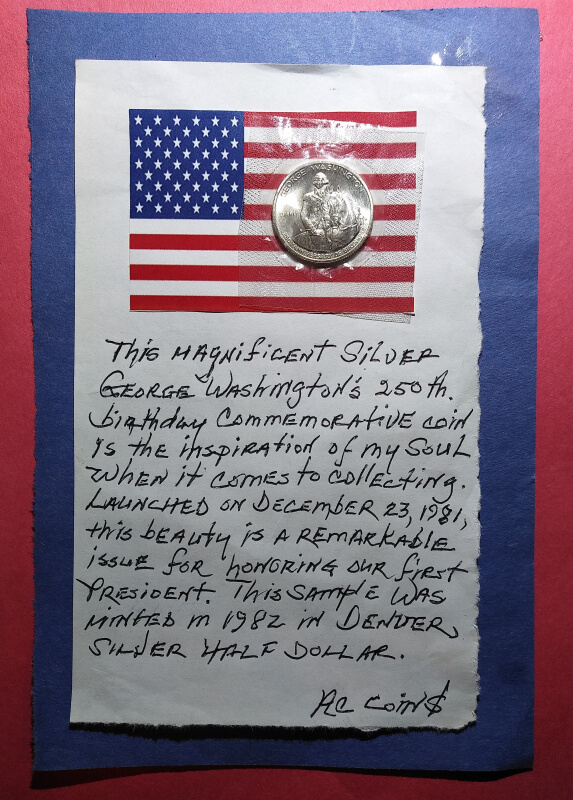 GEORGE WASHINGTON
This MAgnificENT SilVER
GEORGE WAshington's 250th.
birthday COMMEMORATIVE coin
is the inspiration of my SouL
when it comes to collecting.
LAUNCHED ON DECEMBER 23, 1981,
this beauty is A REMARKABLE
issue for honoring our first
President. This SAMPLE WAS
minted in 1982 in DENVER,
SILVER HALF DOLLAR.
RC Coin$